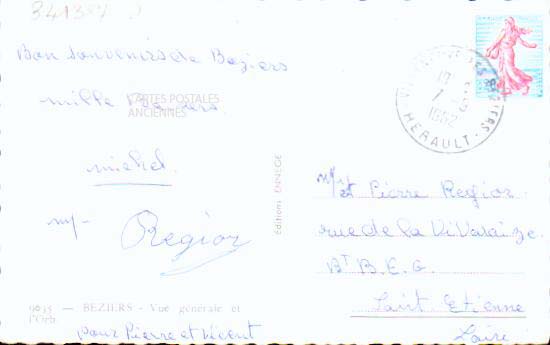 341384
Bon souvenirs de Beziers
mille
CARTES POSTALES
ANCIENNES
michel
Regior
9635 — BEZIERS - Vue générale et
l'Orb
pour Pierre et
Editions ENNEGE
17
7 - 5
1962
HERAULT
et Pierre Regior
rue de la Vivaraize
BT B.E.G.
Saint Etienne
Loire